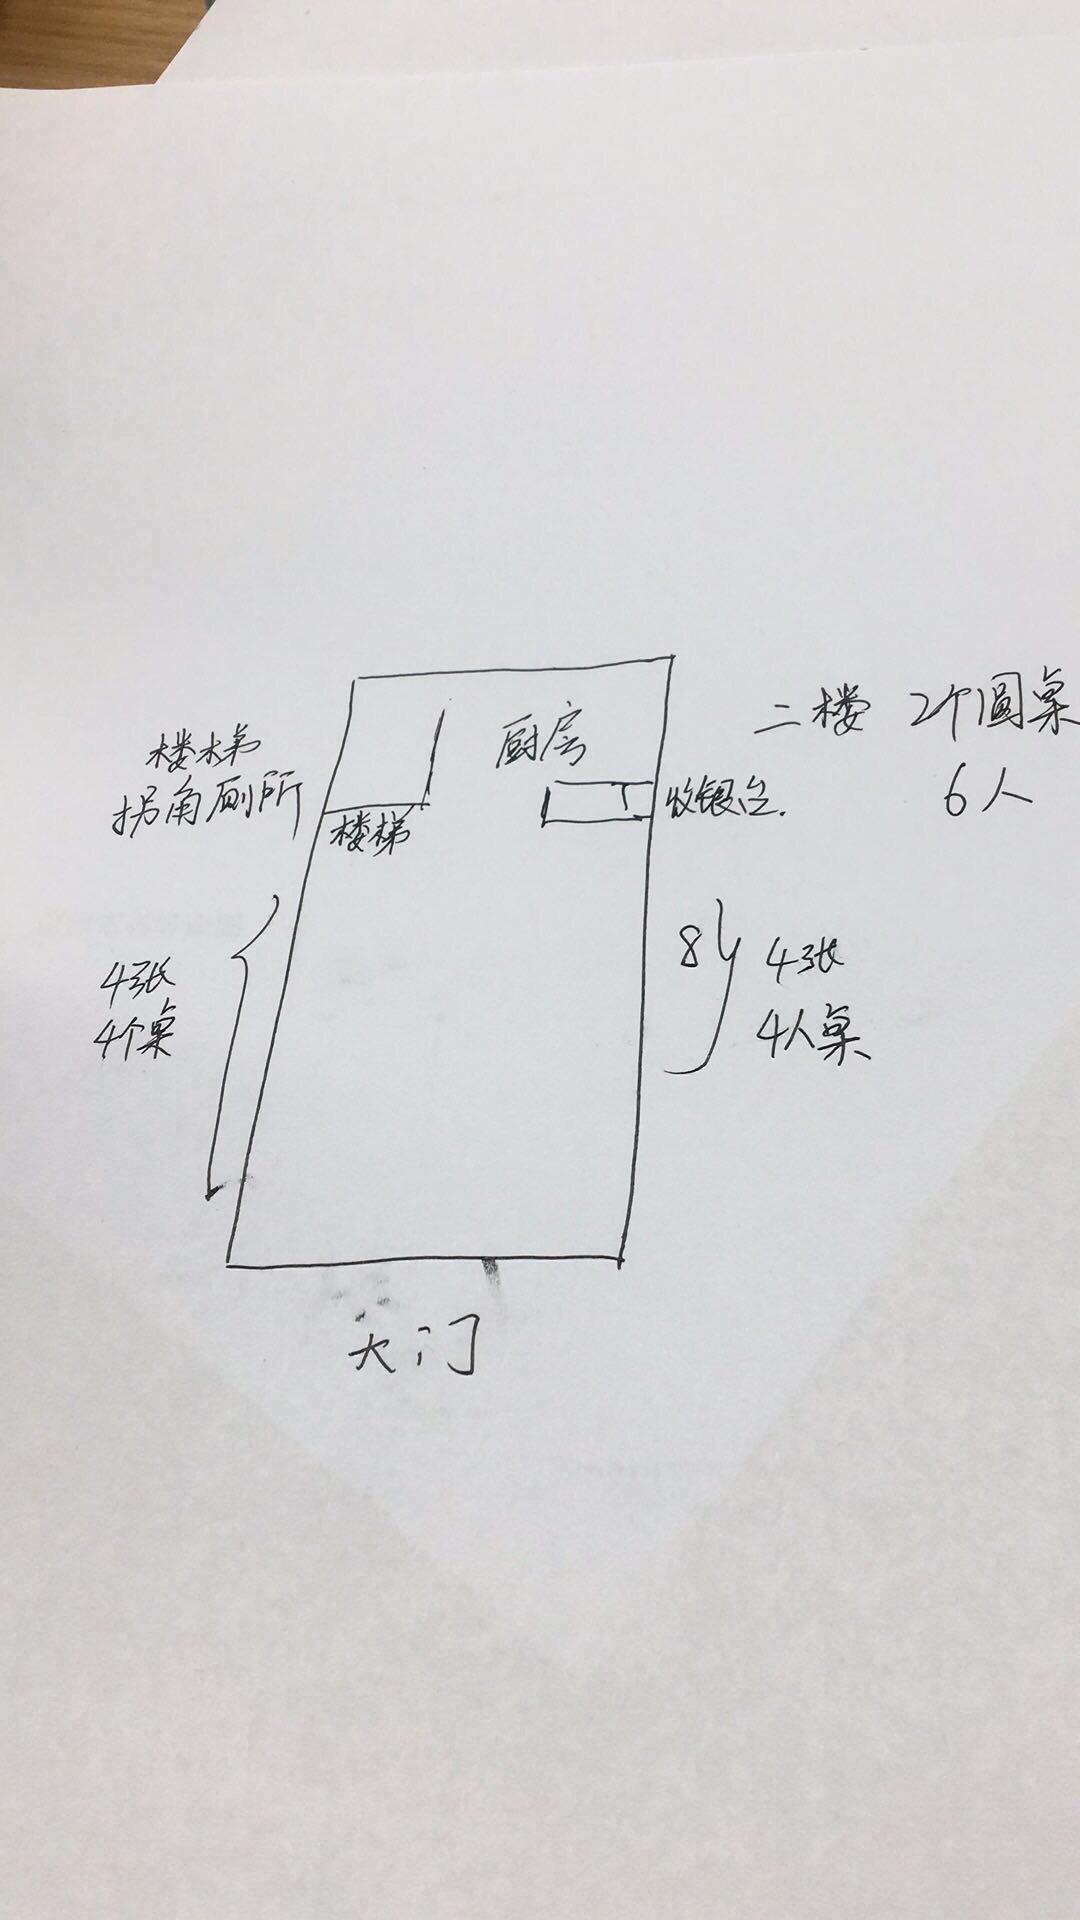 二楼 2个圆桌
6人
楼梯
拐角厕所
厨房
收银台.
楼梯
4张
4个桌
8
4张
4人桌
大门